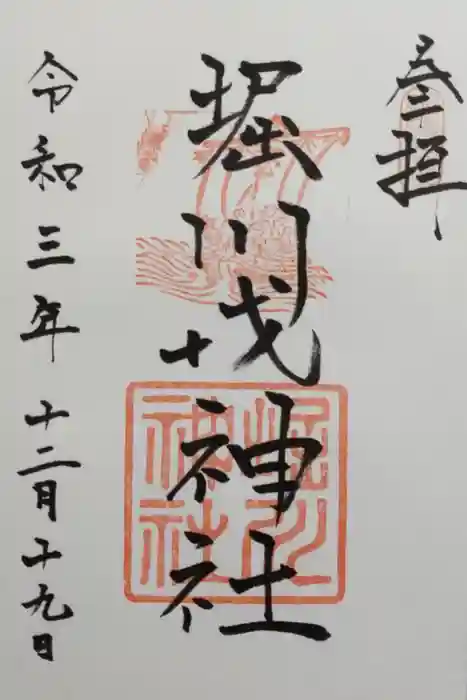 参拝
堀川戎神社
堀川
神社
令和三年十二月十九日